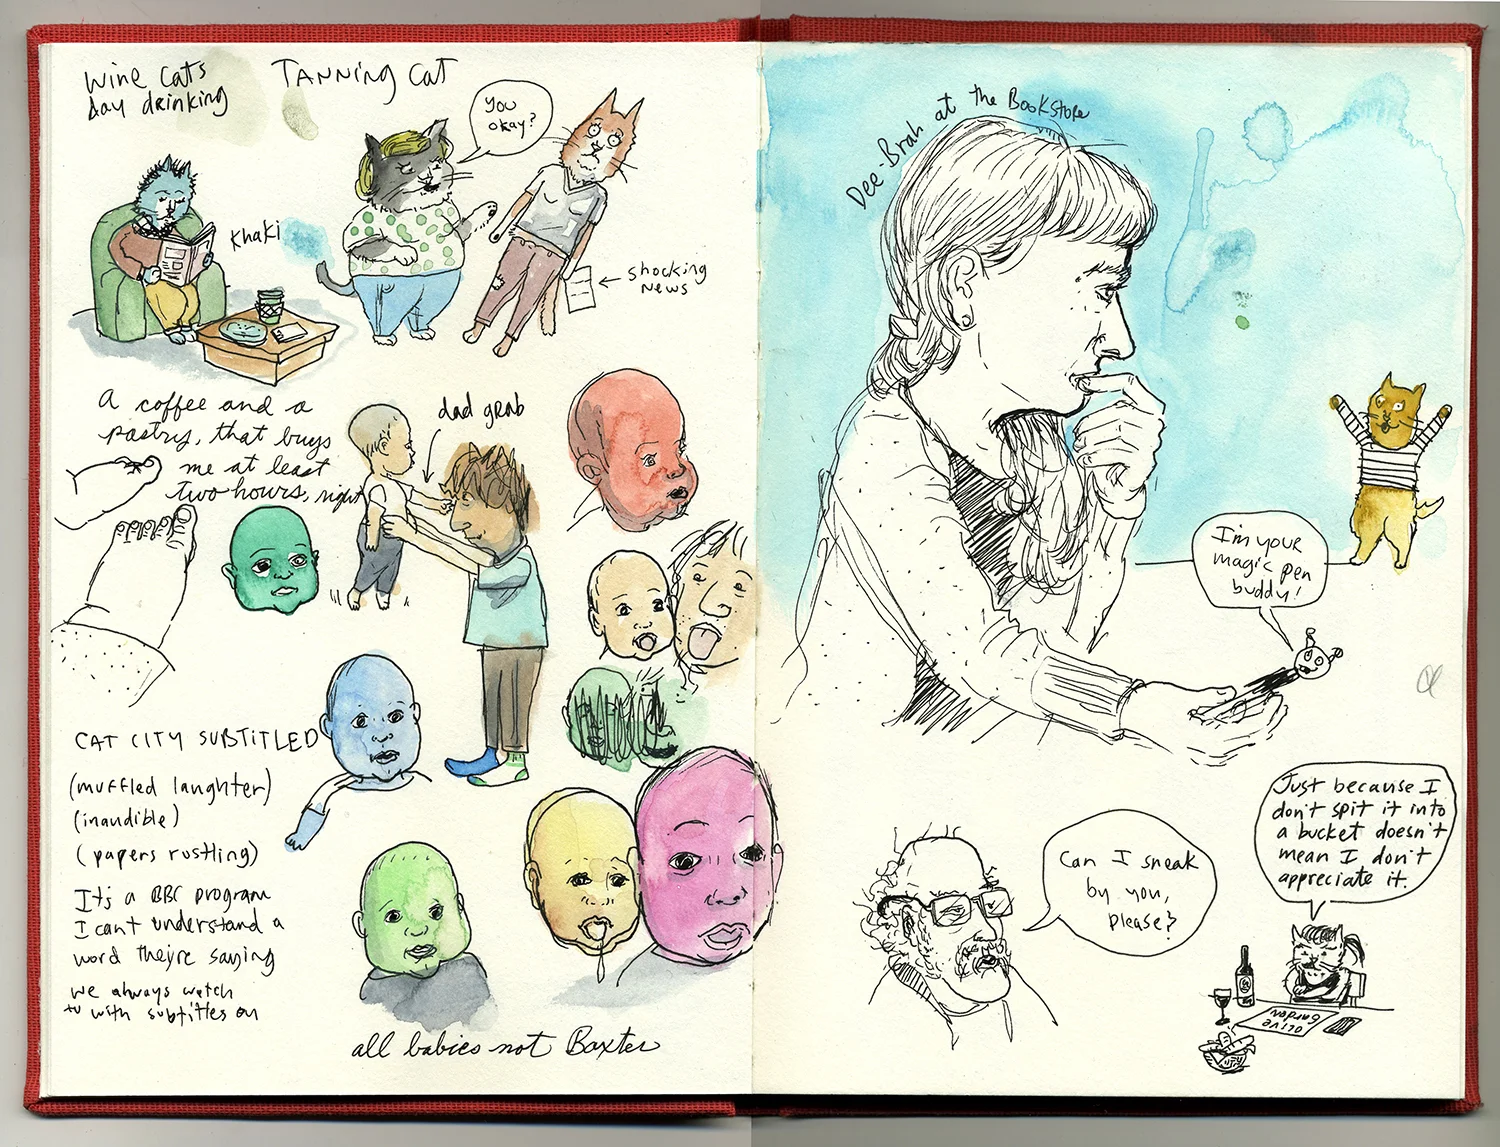 Wine cats
day drinking
TANNING CAT
You
okay?
Khaki
shocking
news
A coffee and a
pastry, that buys
me at least
two hours, right
dad grab
CAT CITY SUBTITLED
(muffled laughter)
(inaudible)
(papers rustling)
It's a BBC program
I can't understand a
word they're saying
we always watch
tv with subtitles on
all babies not Baxter
Dee-Brah at the Bookstore
I'm your
magic pen
buddy!
Can I sneak
by you,
please?
Just because I
don't spit it into
a bucket doesn't
mean I don't
appreciate it.
OLIVE
Garden